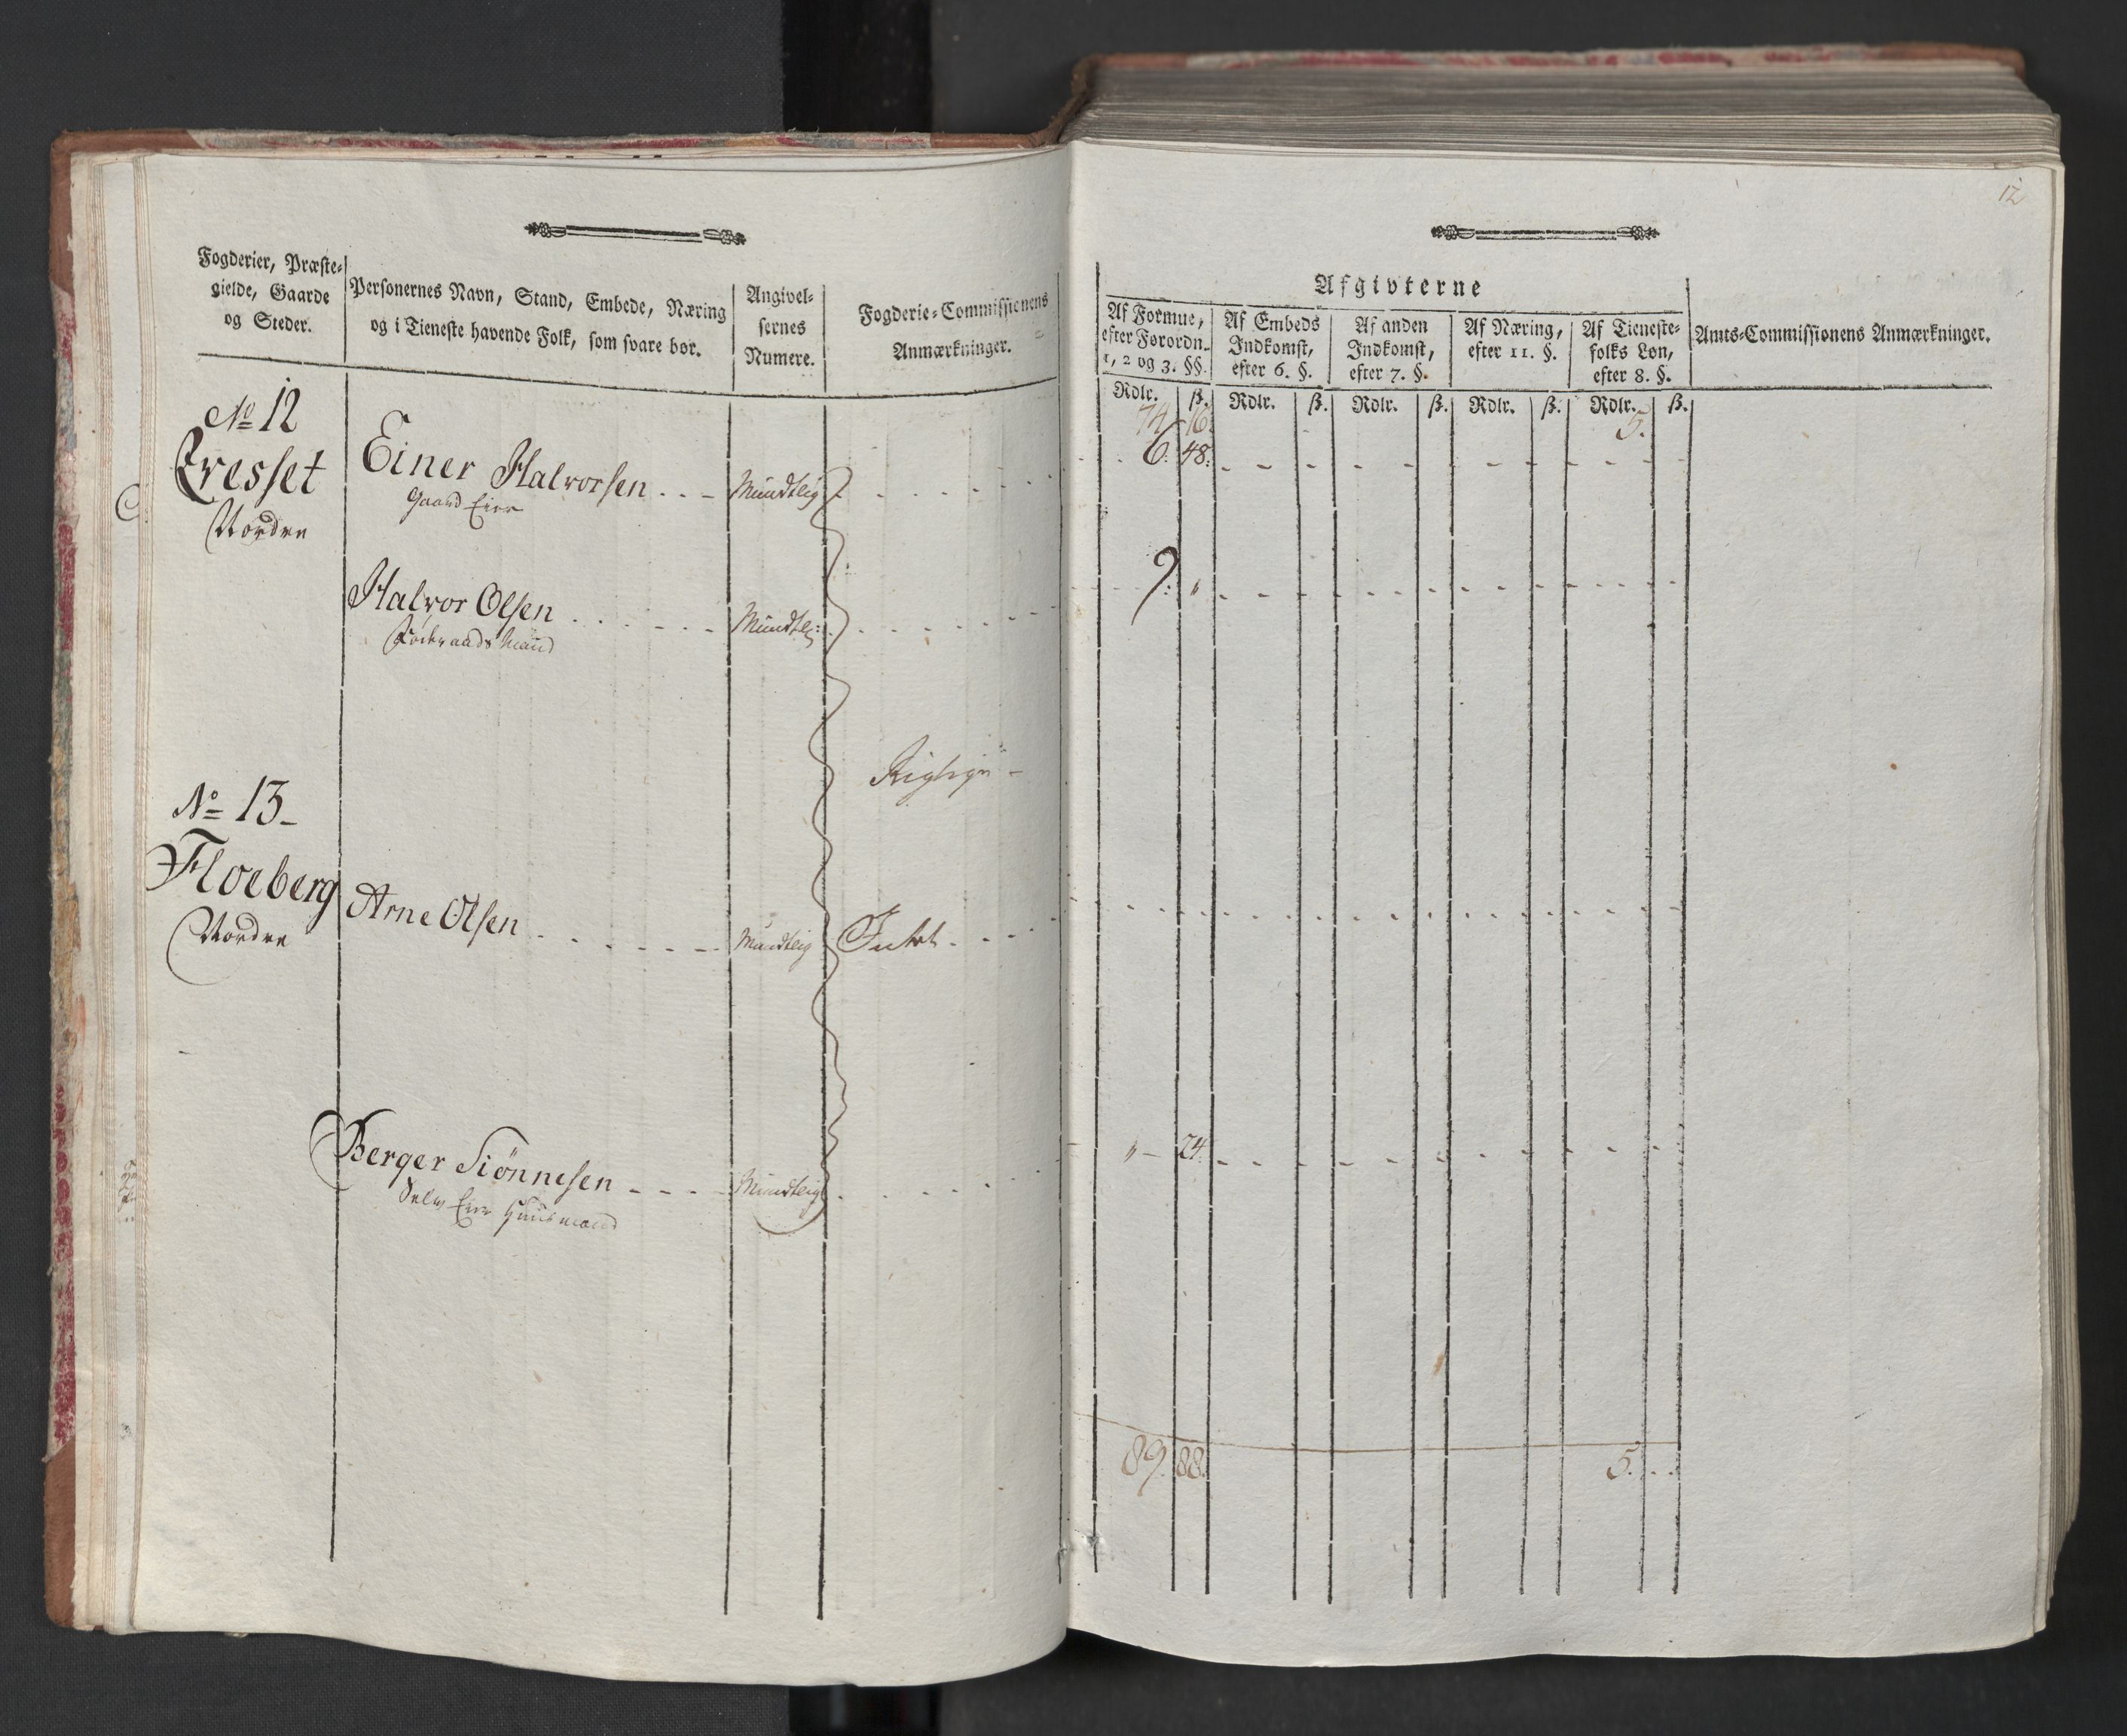 12
Fogderier, Præste-
gielde, Gaarde
og Steder.
Personernes Navn, Stand, Embede, Næring
og i Tieneste havende Folk, som svare bør.
Angivel-
sernes
Numere.
Fogderie-Commissionens
Anmærkninger.
Afgivterne
Af Formue,
efter Forordn.
1, 2 og 3. §§.
Af Embeds
Indkomst,
efter 6. §.
Af anden
Indkomst,
efter 7. §.
Af Næring,
efter 11. §.
Af Tieneste-
folks Løn,
efter 8. §.
Amts-Commissionens Anmærkninger.
Rdlr. ß. Rdlr. ß. Rdlr. ß. Rdlr. ß. Rdlr. ß.
74 16. 5.
No 12
Qvesset
Nordre
Einer Halvorsen . . - Mundtlig 6. 48.
Gaard Eier
Halvor Olsen . . . . . . Mundtlig 9. "
Föderaads Mand
Rigtig
No 13
Floeberg
Nordre
Arne Olsen . . . . . . Mundtlig Intet
Berger Siönnesen - - - - Mundtlig " - 24.
Selv Eier Huusmand
89. 88. 5.